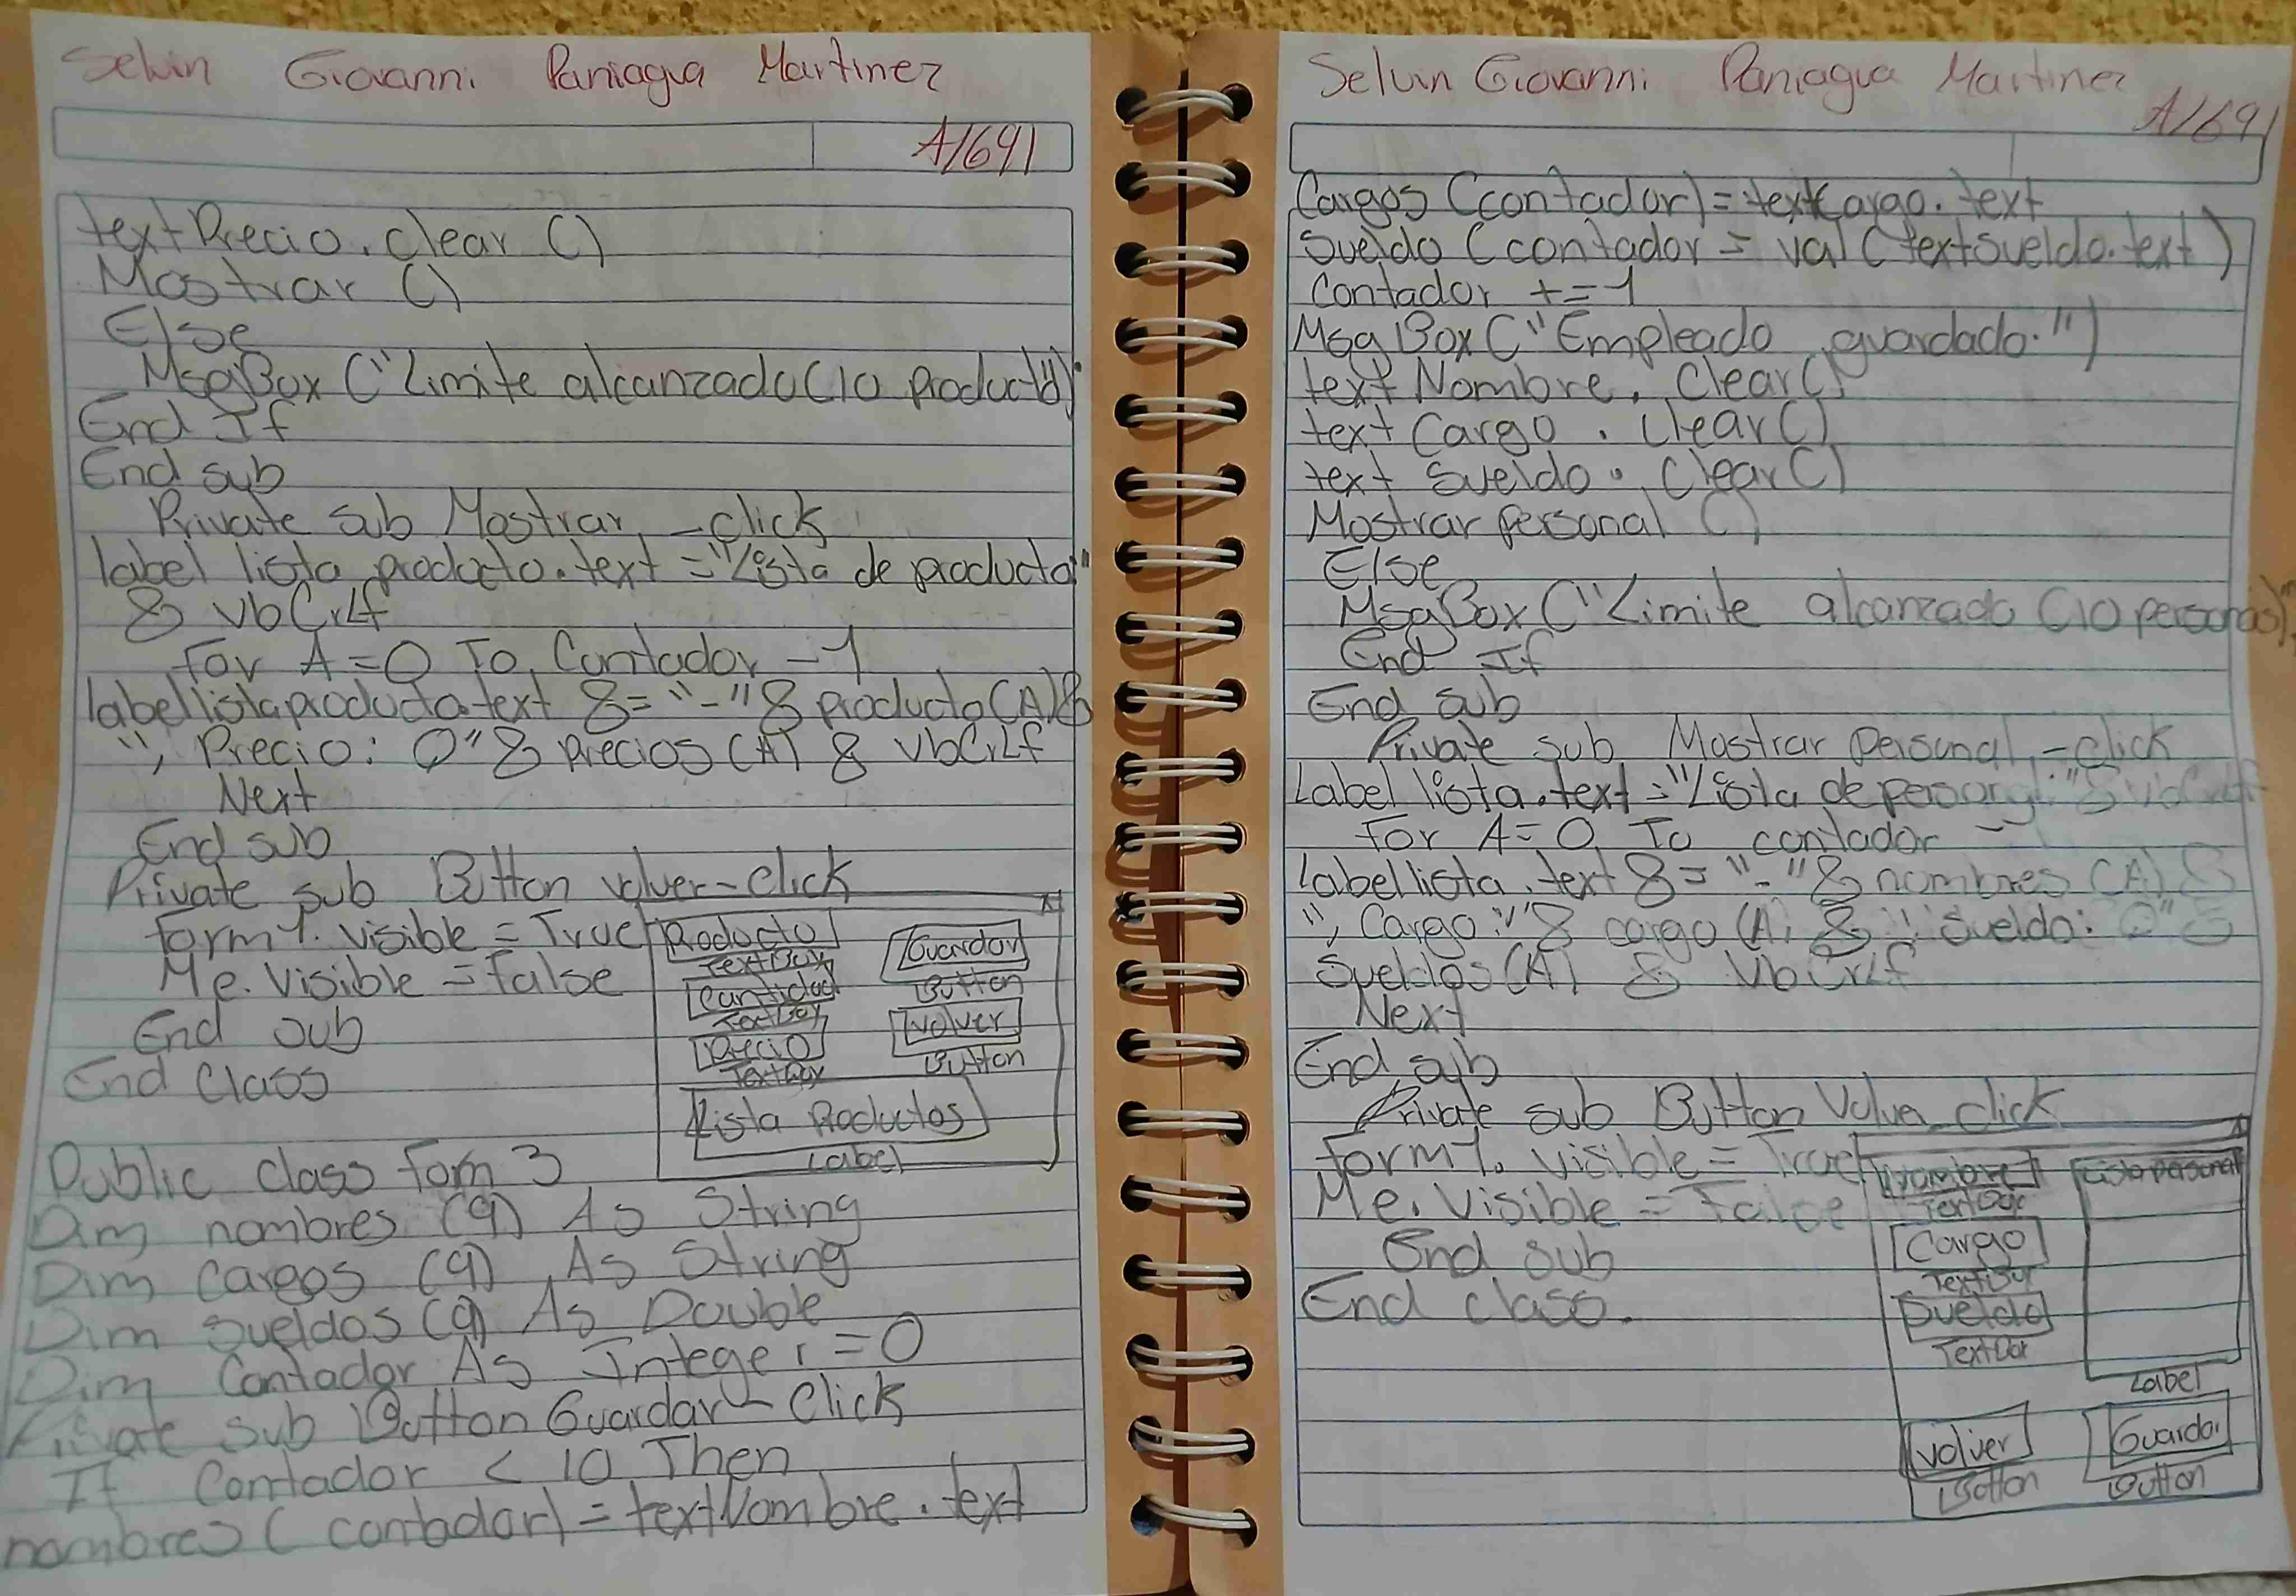 Selvin Giovanni Paniagua Martinez
A1691
textPrecio.clear ()
Mostrar ()
Else
MsgBox ("Limite alcanzado(10 producto)"
End If
End sub
Private sub Mostrar_click
label lista producto.text = "Lista de producto:"
& VbCrLf
For A=0 To Contador -1
labellistaproducto.text &= "-" & producto(A) &
", Precio: Q" & precios (A) & VbCrLf
Next
End sub
Private sub Button volver-click
Form1. visible = True
Me. Visible = False
End sub
End Class
Producto
TextBox
Cantidad
TextBox
Precio
TextBox
Guardar
Button
Volver
Button
Lista Productos
Label
Public class Form 3
Dim nombres (9) As String
Dim Cargos (9) As String
Dim sueldos (9) As Double
Dim Contador As Integer = 0
Private sub Button Guardar-Click
If Contador < 10 Then
nombres (contador) = textNombre.text
Selvin Giovanni Paniagua Martinez
A1691
Cargos (contador) = textCargo.text
Sueldo (contador = val (textSueldo.text)
Contador += 1
MsgBox ("Empleado guardado.")
text Nombre. Clear()
text Cargo . Clear()
text Sueldo. Clear()
Mostrar personal ()
Else
MsgBox ("Limite alcanzado (10 personas)"
End If
End sub
Private sub Mostrar personal_click
Label lista.text = "Lista de personal:" & VbCrLf
For A=0 To contador -1
Label lista.text &= "-" & nombres (A) &
", Cargo:" & cargo (A) & ", Sueldo: Q" &
Sueldos (A) & VbCrLf
Next
End sub
Private sub Button Volver_click
Form1. visible = True
Me. Visible = False
End sub
End class.
Nombre
TextBox
Cargo
TextBox
Sueldo
TextBox
Lista personal
Label
Volver
Button
Guardar
Button